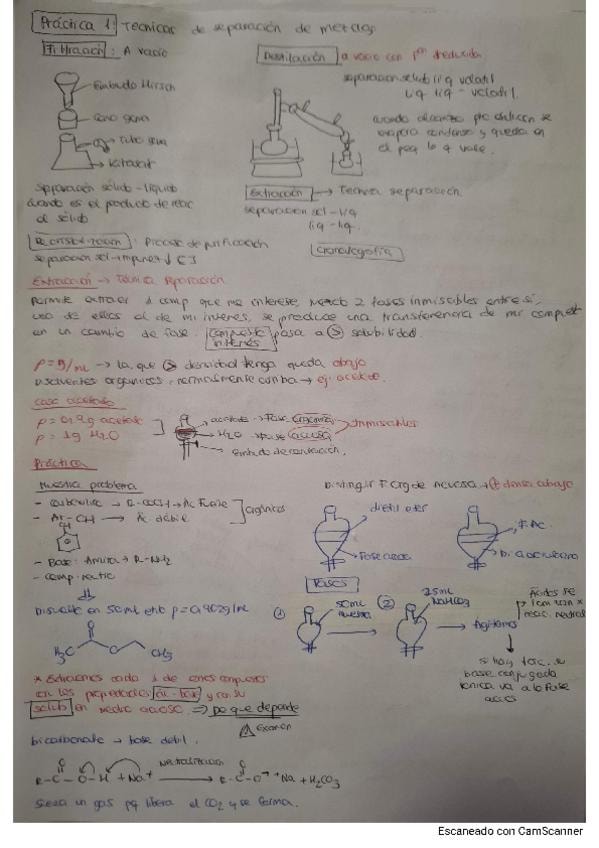 Práctica 1: Tecnicas de separación de mezclas
Filtración: A vacío
Embudo Hirsch
Cono goma
Tubo goma
Kitasat
separación sólido-líquido
cuando es el producto de reac
el sólido
Destilación a vacío con
separación sólido liq volátil
Liq liq - volátil.
cuando alcanzo pto ebullicen se
evapora condensa y queda en
el peq
Extracción → Tecnica separación
separación sol-liq
liq-liq.
Recristalización: Proceso de purificación
separación sol-impurezas
Cromatografía
Extracción → Técnica separación
permite extraer 1 comp que me interese, Necesito 2 fases inmiscibles entre sí,
una de ellas al de mi interés, se produce una transferencia de mi compuest
en un cambio de fase. Compuesto interés pasa a > solubilidad.
ρ = g/ml → la que > densidad tenga queda abajo
disolventes organicos, normalmente arriba → ej: acetato.
caso acetato
ρ = 0,9 g acetato
ρ = 1g H2O
acetato → Fase orgánica
H2O → Fase acuosa
Inmiscibles
Embudo decantación.
Práctica
Nuestra problema
- carboxílico → R-COOH → Ac Fuerte
- Ar-OH → Ac. débil
orgánicos
- Base: Amina → R-NH2
- comp. neutro
Disuelto en 50ml ρ=0,902g/ml
H3C
O
O
CH3
Distinguir F. org de acuosa → densa abajo
dietil eter
Fase acuosa
F. AC.
Diclorometano
Fases
① 50ml muestra
② 25ml NaHCO3
Agitamos
Ácidos se
reac. neutral
si hay reac. su
base conjugada
iónica va a la Fase
acuos
* Extraemos cada 1 de estos compuestos
con las propiedades ác-base y con su
solub en medio acuoso. ⇒ De que depende
Examen
bicarbonato → base débil.
R-C-O-H + Na+ Neutralización → R-C-O- + Na + H2CO3
O
O
Sería un gas pq libera el CO2 y se forma.
Escaneado con CamScanner